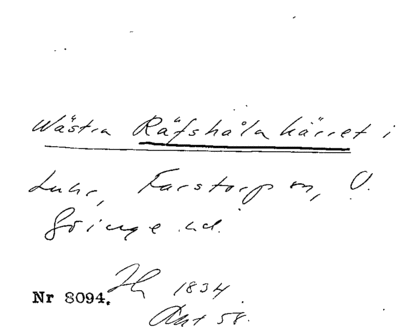 Wästra Räfshåla kärret i
Luhr, Farstorp sn, V.
Göinge hd.
Nr 8094. Hy 1834
Akt 58.